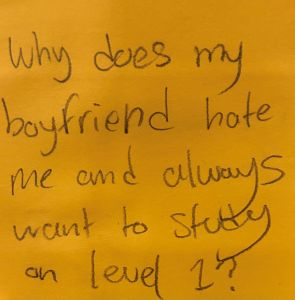 Why does my
boyfriend hate
me and always
want to study
on level 1?